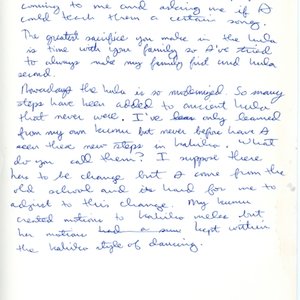 coming to me and asking me if I
could teach them a certain song.
The greatest sacrifice you make in the hula
is time with your family so I've tried
to always make my family first and hula
second.
Nowadays the hula is so modernized. So many
steps have been added to ancient hula
that never were. I've only learned
from my own kumu but never before have I
seen these new steps in kahiko. What
do you call them? I suppose there
has to be change but I come from the
old school and its hard for me to
adjust to this change. My kumu
created motions to kahiko meles but
her motions had a sum kept within
the kahiko style of dancing.